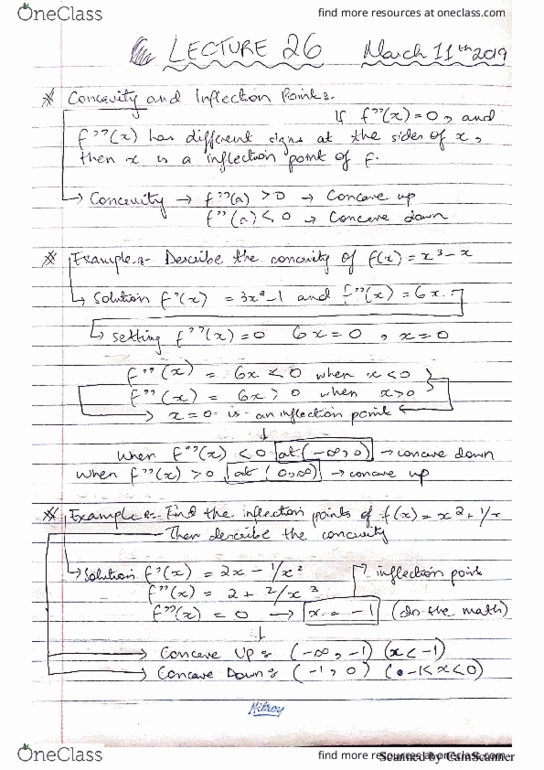 OneClass
find more resources at oneclass.com
LECTURE 26 March 11th 2019
* Concavity and Inflection Points:
If f''(x) = 0, and
f''(x) has different signs at the sides of x,
then x is a inflection point of f.
Concavity → f''(a) > 0 → Concave up
f''(a) < 0 → Concave down
* Example:- Describe the concavity of f(x) = x³ - x
Solution f'(x) = 3x² - 1 and f''(x) = 6x.
setting f''(x) = 0 6x = 0, x = 0
f''(x) = 6x < 0 when x < 0
f''(x) = 6x > 0 when x > 0
x = 0 is an inflection point
when f''(x) < 0 at (-∞, 0) → concave down
when f''(x) > 0 at (0, ∞) → concave up
* Example:- Find the inflection points of f(x) = x2 + 1/x
Then describe the concavity
Solution f'(x) = 2x - 1/x² inflection point
f''(x) = 2 + 2/x³
f''(x) = 0 → x = -1 (do the math)
Concave Up: (-∞, -1) (x < -1)
Concave Down: (-1, 0) (-1 < x < 0)
OneClass
find more resources at oneclass.com
Scanned by CamScanner